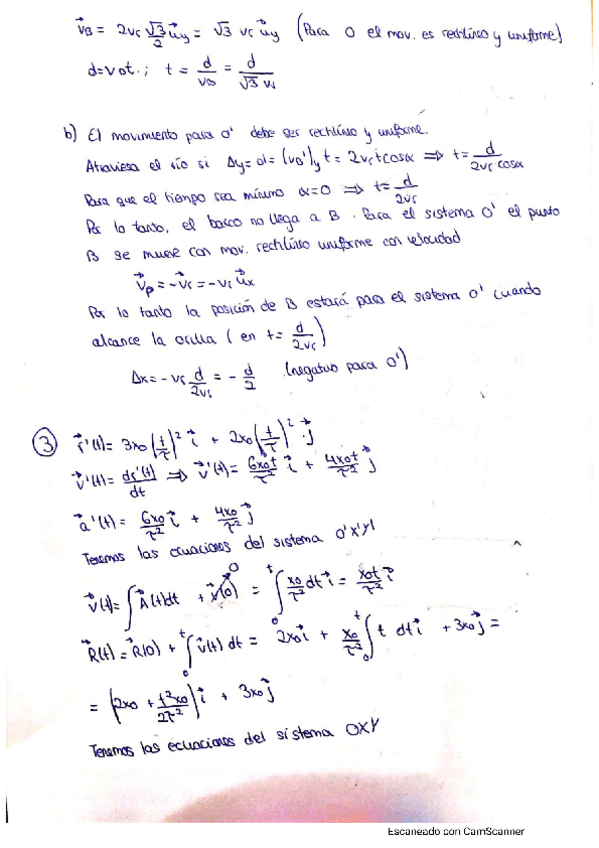 v⃗B = 2vr √3/2 u⃗y = √3 vr u⃗y (Para O el mov. es rectilíneo y uniforme)
d = v0t ; t = d/vB = d/(√3 vr)
b) El movimiento para O' debe ser rectilíneo y uniforme.
Atraviesa el río si Δy = d = (vB')y t = 2vr t cosα ⇒ t = d/(2vr cosα)
Para que el tiempo sea mínimo α=0 ⇒ t = d/(2vr)
Por lo tanto, el barco no llega a B. Para el sistema O' el punto
B se mueve con mov. rectilíneo uniforme con velocidad
v⃗p = -v⃗r = -vr u⃗x
Por lo tanto la posición de B estará para el sistema O' cuando
alcance la orilla (en t = d/(2vr))
Δx = -vr d/(2vr) = -d/2 (negativo para O')
③ r⃗'(t) = 3x0(t/τ)² i⃗ + 2x0(t/τ)² · j⃗
v⃗'(t) = dr⃗'(t)/dt ⇒ v⃗'(t) = 6x0t/τ² i⃗ + 4x0t/τ² j⃗
a⃗'(t) = 6x0/τ² i⃗ + 4x0/τ² j⃗
Tenemos las ecuaciones del sistema O'X'Y'
v⃗(t) = ∫A⃗(t)dt + v⃗(0) 0 = ∫₀ᵗ x0/τ² dt i⃗ = x0t/τ² i⃗
R⃗(t) = R⃗(0) + ∫₀ᵗ v⃗(t) dt = 2x0 i⃗ + x0/τ² ∫₀ᵗ t dt i⃗ + 3x0 j⃗ =
= (2x0 + t²x0/2τ²) i⃗ + 3x0 j⃗
Tenemos las ecuaciones del sistema OXY
Escaneado con CamScanner